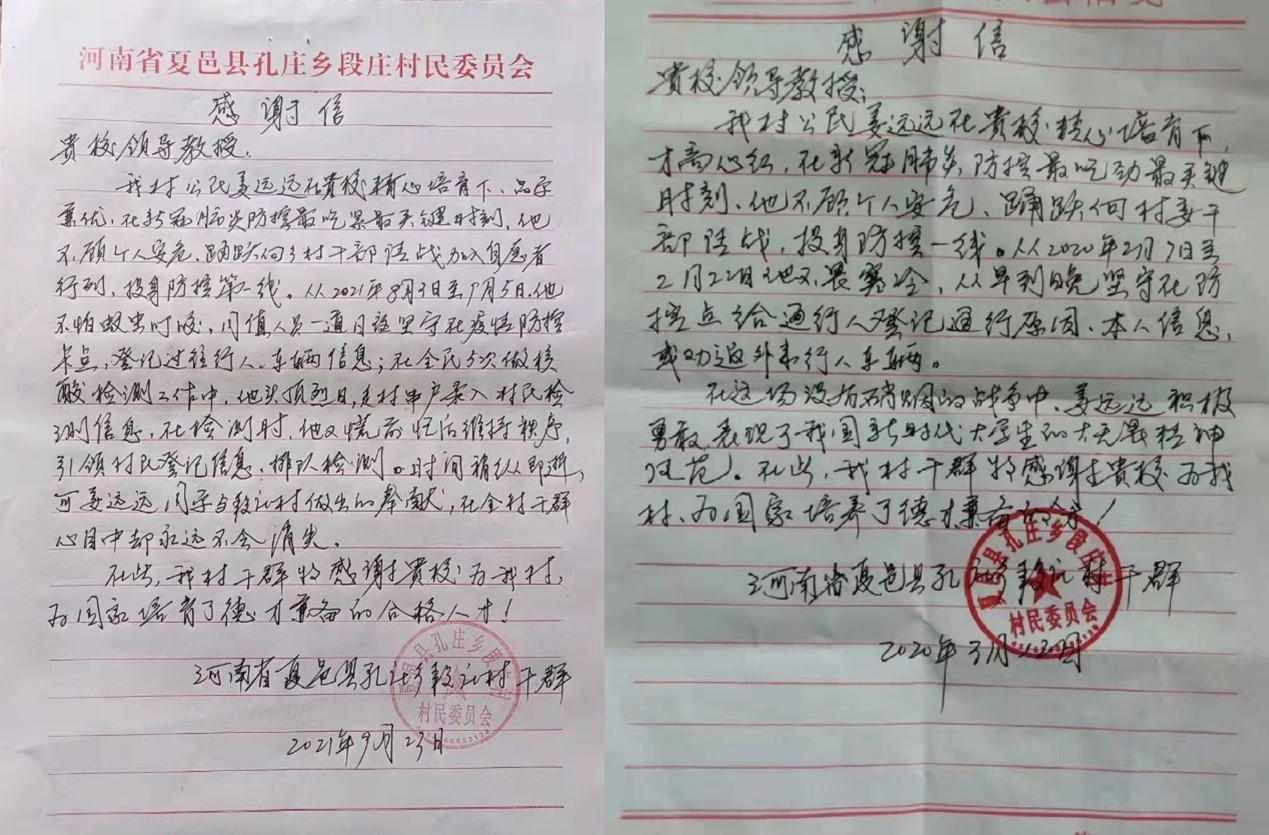 河南省夏邑县孔庄乡段庄村民委员会
感谢信
贵校领导教授:
我村公民姜远远在贵校精心培育下、品学
兼优,在新冠肺炎防控最吃紧最关键时刻,他
不顾个人安危,踊跃向乡村干部请战加入自愿者
行列,投身防控第一线。从2021年8月3日至9月5日,他
不怕蚊虫叮咬,同值人员一道日夜坚守在疫情防控
卡点,登记过往行人、车辆信息;在全民5次做核
酸检测工作中,他头顶烈日,走村串户录入村民检
测信息,在检测时,他又慌前忙后维持秩序,
引领村民登记信息、排队检测。时间稍纵即逝,
可姜远远同学与段庄村做出的奉献,在全村干群
心目中却永远不会消失。
在此,我村干群特感谢贵校为我村,
为国家培育了德才兼备的合格人才!
河南省夏邑县孔庄乡段庄村干群
2021年9月23日
夏邑县孔庄乡段庄村
村民委员会
感谢信
贵校领导教授:
我村公民姜远远在贵校精心培育下,
才高心红,在新冠肺炎防控最吃劲最关键
时刻、他不顾个人安危、踊跃向村委干
部请战,投身防控一线。从2020年2月7日至
2月22日他不畏寒冷,从早到晚坚守在防
控点给通行人登记通行原因、本人信息,
或劝返外来行人车辆。
在这场没有硝烟的战争中,姜远远积极
勇敢表现了我国新时代大学生的大无畏精神
风范。在此,我村干群特感谢贵校为我
村、为国家培养了德才兼备的人才!
河南省夏邑县孔庄乡段庄村干群
2020年3月12日
夏邑县孔庄乡段庄村
村民委员会